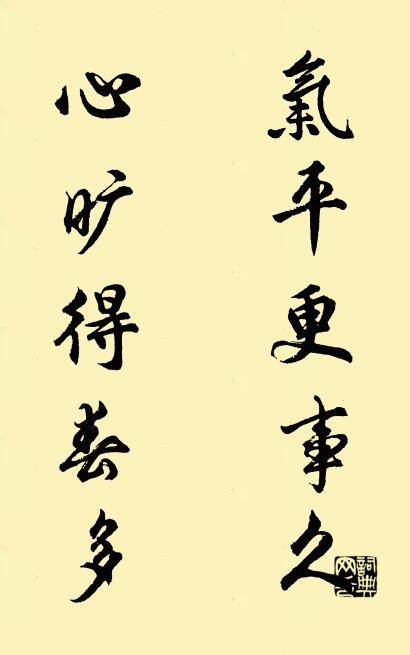 氣平更事久
心旷得春多
詞典网